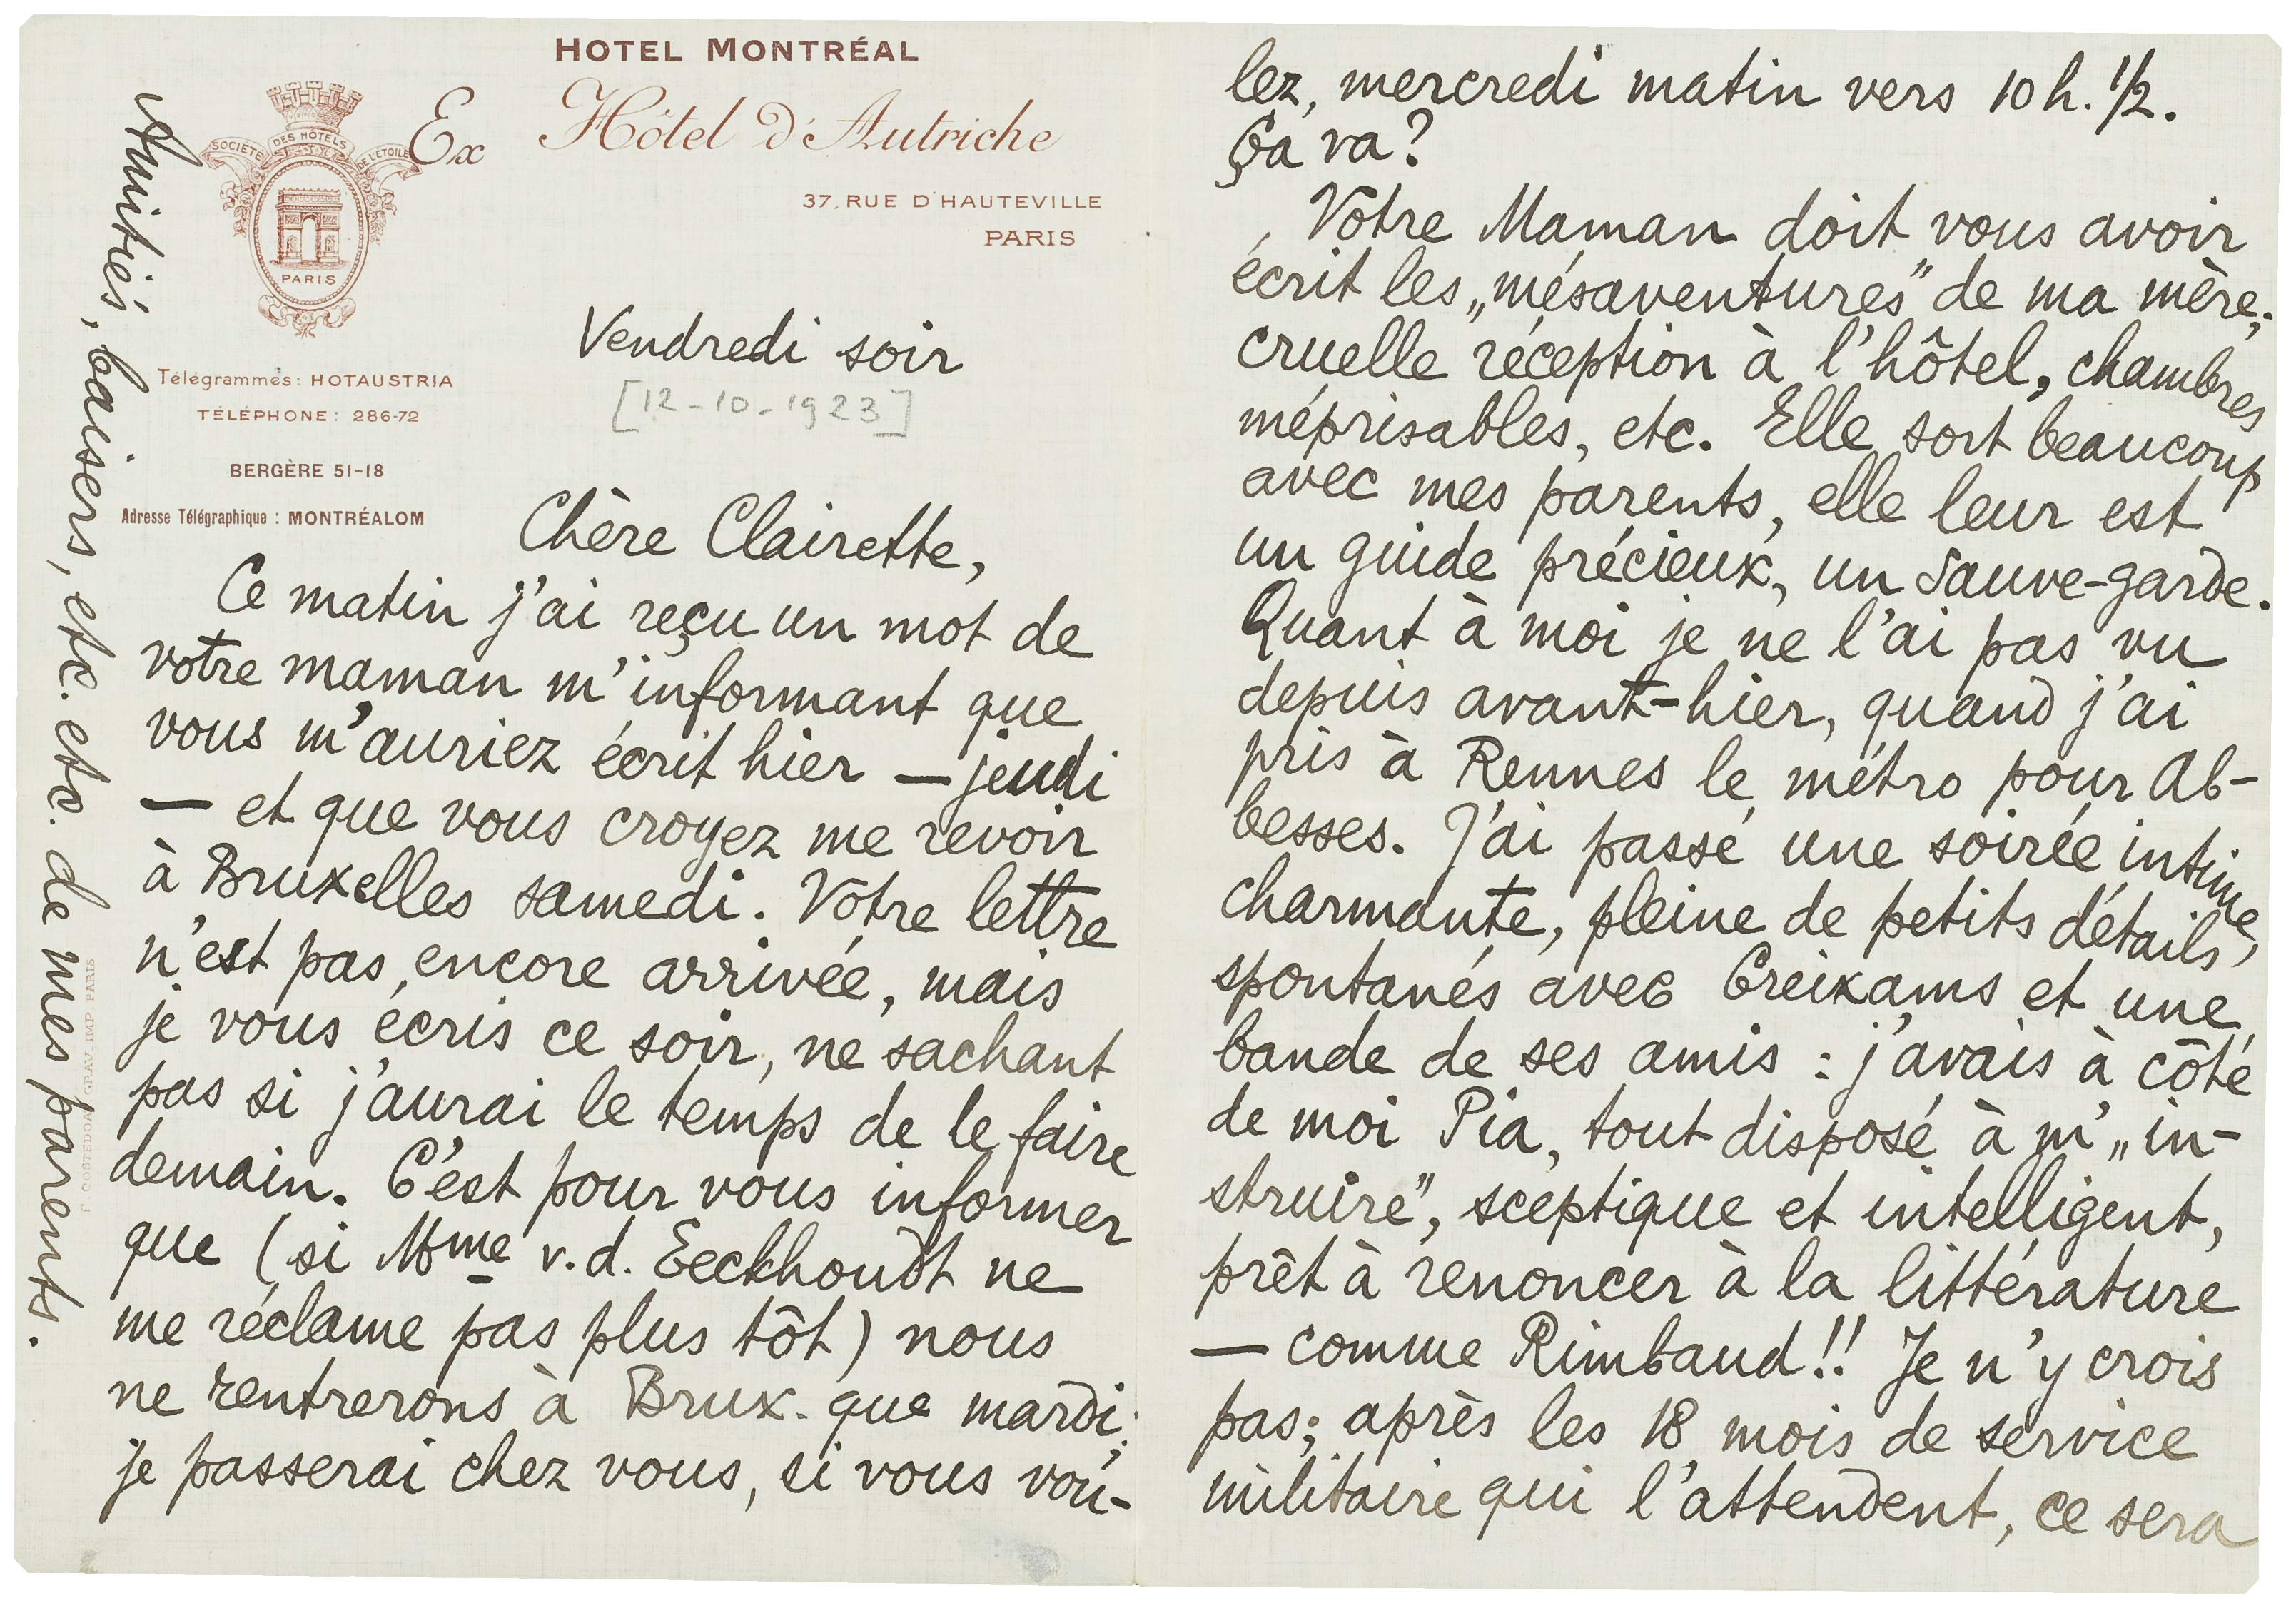 HOTEL MONTRÉAL
Ex Hôtel d'Autriche
37, RUE D'HAUTEVILLE
PARIS
SOCIÉTÉ DES HÔTELS DE L'ÉTOILE
PARIS
Télégrammes: HOTAUSTRIA
TÉLÉPHONE: 286-72
BERGÈRE 51-18
Adresse Télégraphique : MONTRÉALOM
Vendredi soir
[12-10-1923]
Chère Clairette,
Ce matin j'ai reçu un mot de
votre maman m'informant que
vous m'auriez écrit hier — jeudi
— et que vous croyez me revoir
à Bruxelles samedi. Votre lettre
n'est pas encore arrivée, mais
je vous écris ce soir, ne sachant
pas si j'aurai le temps de le faire
demain. C'est pour vous informer
que (si Mme v.d. Eeckhoudt ne
me réclame pas plus tôt) nous
ne rentrerons à Brux. que mardi;
je passerai chez vous, si vous vou-
Amitiés, baisers, etc. etc. de mes parents.
GRAV. IMP. PARIS
lez, mercredi matin vers 10 h. 1/2.
Ça va?
Votre Maman doit vous avoir
écrit les „mésaventures" de ma mère;
cruelle réception à l'hôtel, chambres
méprisables, etc. Elle sort beaucoup
avec mes parents, elle leur est
un guide précieux, un sauve-garde.
Quant à moi je ne l'ai pas vu
depuis avant-hier, quand j'ai
pris à Rennes le métro pour Ab-
besses. J'ai passé une soirée intime,
charmante, pleine de petits détails,
spontanés avec Creixams et une
bande de ses amis : j'avais à côté
de moi Pia, tout disposé à m'„in-
struire", sceptique et intelligent,
prêt à renoncer à la littérature
— comme Rimbaud!! Je n'y crois
pas; après les 18 mois de service
militaire qui l'attendent, ce sera